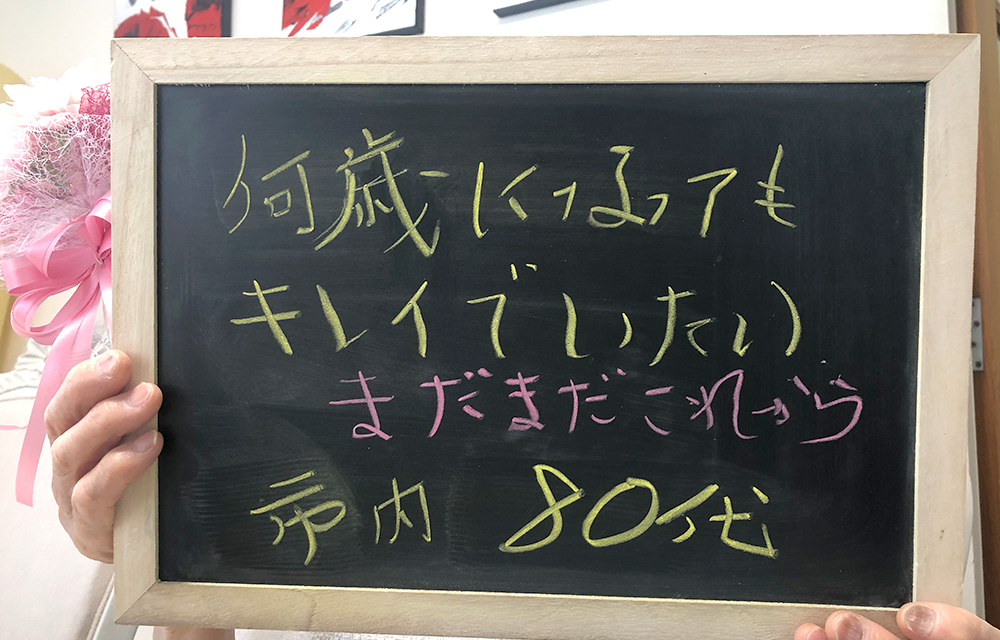 何歳になっても
キレイでいたい
まだまだこれから
市内 80代